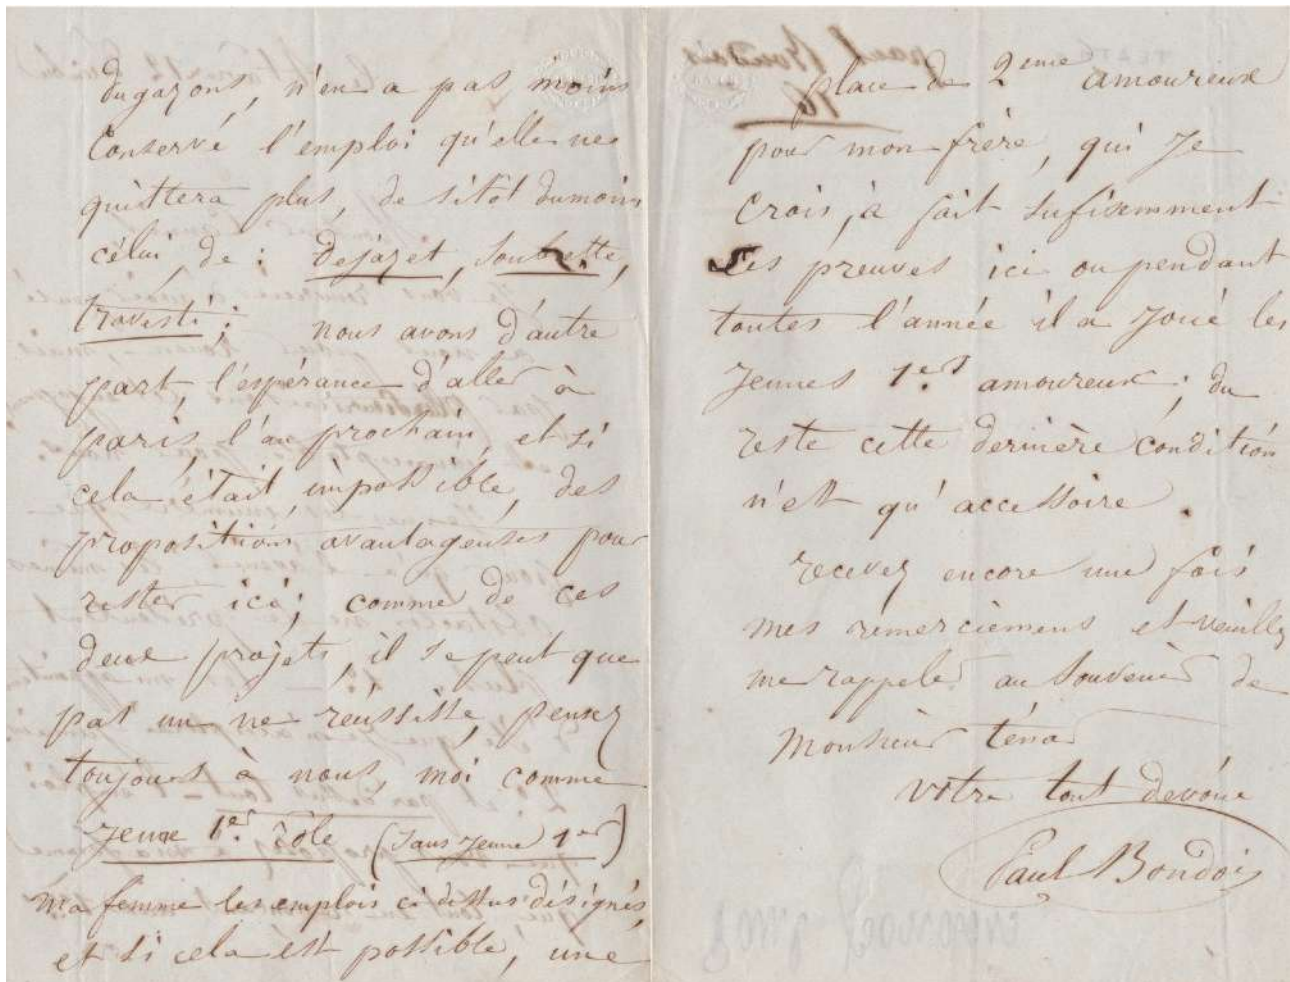 dugazons, n'en a pas moins
Conservé l'emploi qu'elle ne
quittera plus, de sitôt dumoins
célui de : Dejazet, soubrette,
travesti ; nous avons d'autre
part, l'espérance d'aller à
paris l'an prochain, et si
cela était impossible, des
propositions avantageuses pour
rester ici ; comme de ces
deux projets, il se peut que
pas un ne réussisse, pensez
toujours à nous, moi comme
jeune 1er. rôle (sans jeune 1er)
ma femme les emplois ci dessus désignés,
et si cela est possible, une
place de 2eme amoureux
pour mon frère, qui je
crois, a fait sufisemment
ses preuves ici ou pendant
toutes l'année il a joué les
jeunes 1ers amoureux ; du
reste cette dernière condition
n'est qu'accessoire.
recevez encore une fois
mes remerciemens et veuillez
me rappeler au souvenir de
Monsieur ténar
votre tout dévoué
Paul Bondois